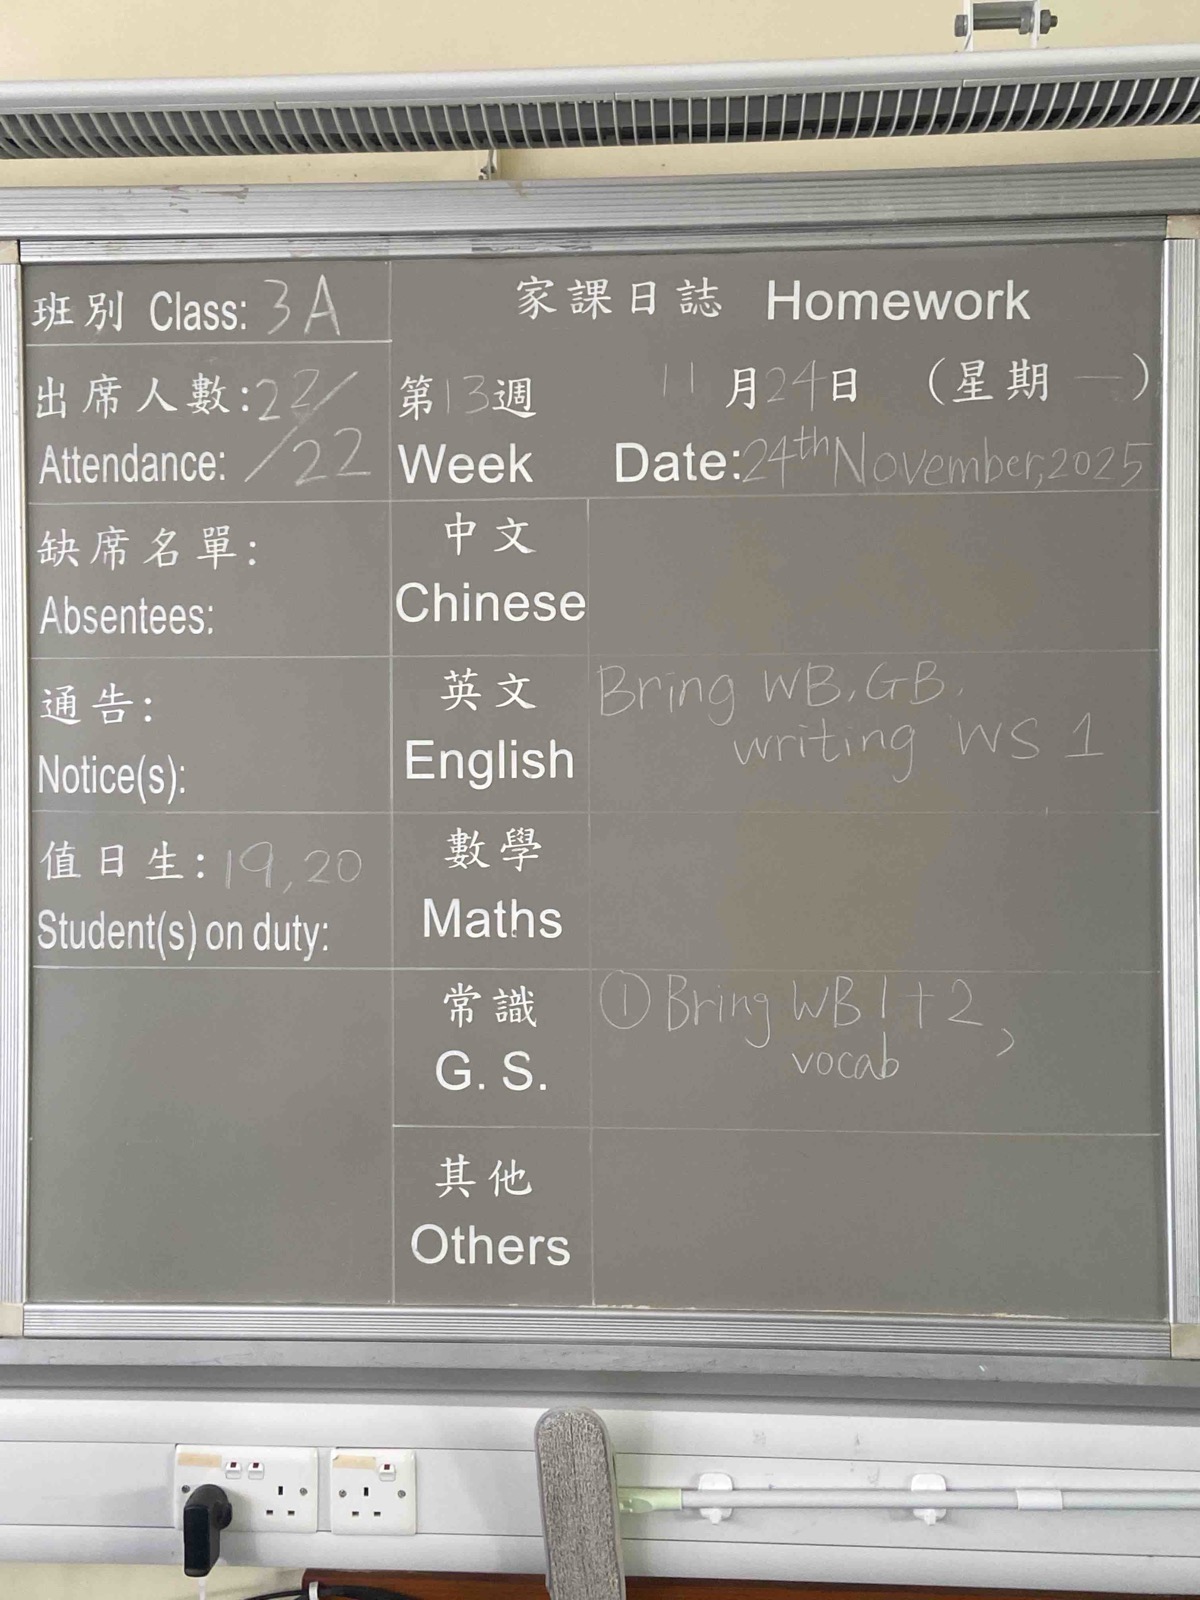 班別 Class: 3A
家課日誌 Homework
出席人數: 22/
Attendance: /22
第13週 11月24日 (星期一)
Week Date: 24th November, 2025
缺席名單:
Absentees:
中文
Chinese
通告:
Notice(s):
英文
English
Bring WB, GB,
writing WS 1
值日生: 19, 20
Student(s) on duty:
數學
Maths
常識
G. S.
① Bring WB 1+2,
vocab
其他
Others